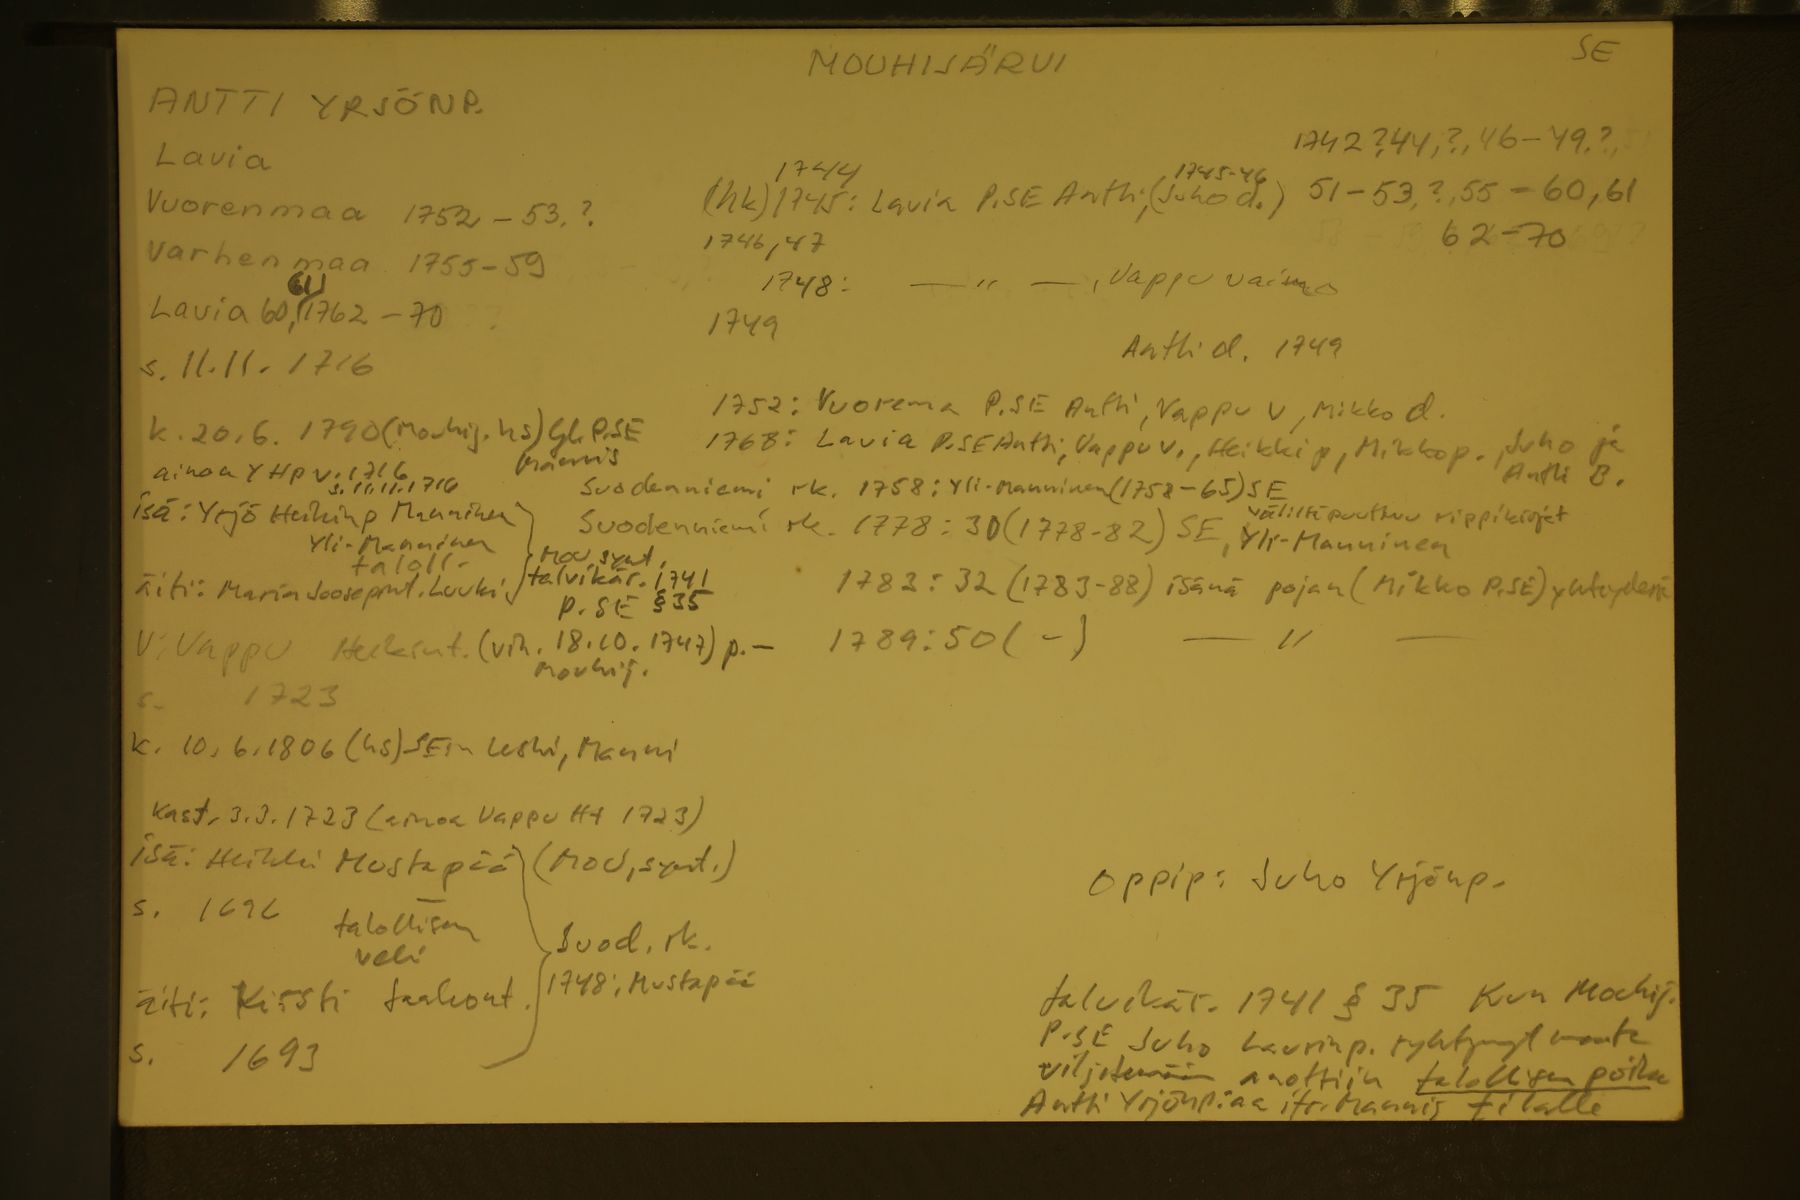 MOUHIJÄRVI
SE
ANTTI YRJÖNP.
Lavia
Vuorenmaa 1752 – 53, ?
Varhenmaa 1755 – 59
Lavia 60, 61, 1762 – 70
s. 11.11. 1716
k. 20.6. 1790 (Mouhij. hs) Gl. P.SE
Mannis
ainoa YHp v. 1716
s. 11.11.1716
isä: Yrjö Heikinp Manninen
Yli-Manninen
taloll.
äiti: Maria Joosepint. Luuki
Mou, synt.
talvikär. 1741
P. SE § 35
V: Vappu Heikint. (vih. 18.10. 1747) p. –
Mouhij.
s. 1723
k. 10.6.1806 (hs) SE:n leski, Manni
kast. 3.3.1723 (ainoa Vappu Ht 1723)
isä: Heikki Mustapää (Mou, synt.)
s. 1696
talollisen
veli
äiti: Kirsti Jaakont.
s. 1693
Suod. rk.
1748: Mustapää
1742 ?, 44, ?, 46 – 49, ?,
51 – 53, ?, 55 – 60, 61
62 – 70
1744
(hk) 1745: Lavia P.SE Antti, (Juho d.)
1745-46
1746, 47
1748: — " — , Vappu vaimo
1749
Antti d. 1749
1752: Vuorema P.SE Antti, Vappu v, Mikko d.
1768: Lavia P.SE Antti, Vappu v., Heikki p, Mikko p., Juho ja
Antti B.
Suodenniemi rk. 1758: Yli-Manninen (1758 – 65) SE
väliltä puuttuu rippikirjat
Suodenniemi rk. 1778: 30 (1778-82) SE, Yli-Manninen
1783: 32 (1783-88) isänä pojan (Mikko P.SE) yhteydessä
1789: 50 ( – ) — " —
Oppip: Juho Yrjönp.
talvikär. 1741 § 35 Kun Mouhij.
P.SE Juho Laurinp. ryhtynyt maata
viljelemään anottiin talollisen poika
Antti Yrjönpiaa itr. Mannis tilalle